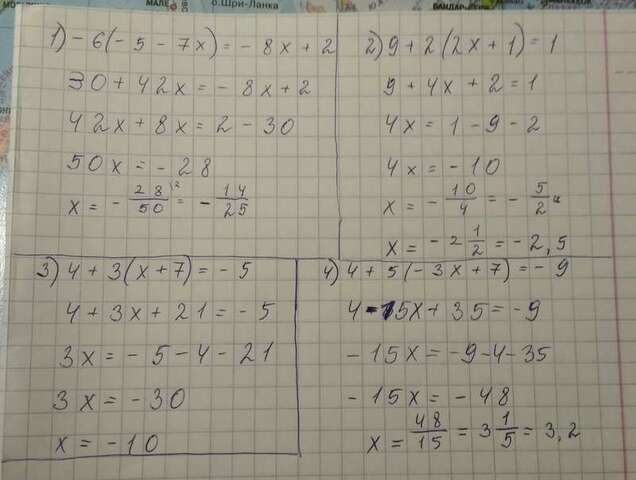 МАЛЕ
о.Шри-Ланка
1) - 6(- 5 - 7x) = - 8x + 2
30 + 42x = - 8x + 2
42x + 8x = 2 - 30
50x = - 28
x = - 28/50 = - 14/25
2) 9 + 2(2x + 1) = 1
9 + 4x + 2 = 1
4x = 1 - 9 - 2
4x = - 10
x = - 10/4 = - 5/2
x = - 2 1/2 = - 2,5
3) 4 + 3(x + 7) = - 5
4 + 3x + 21 = - 5
3x = - 5 - 4 - 21
3x = - 30
x = - 10
4) 4 + 5(- 3x + 7) = - 9
4 - 15x + 35 = - 9
- 15x = - 9 - 4 - 35
- 15x = - 48
x = 48/15 = 3 1/5 = 3,2